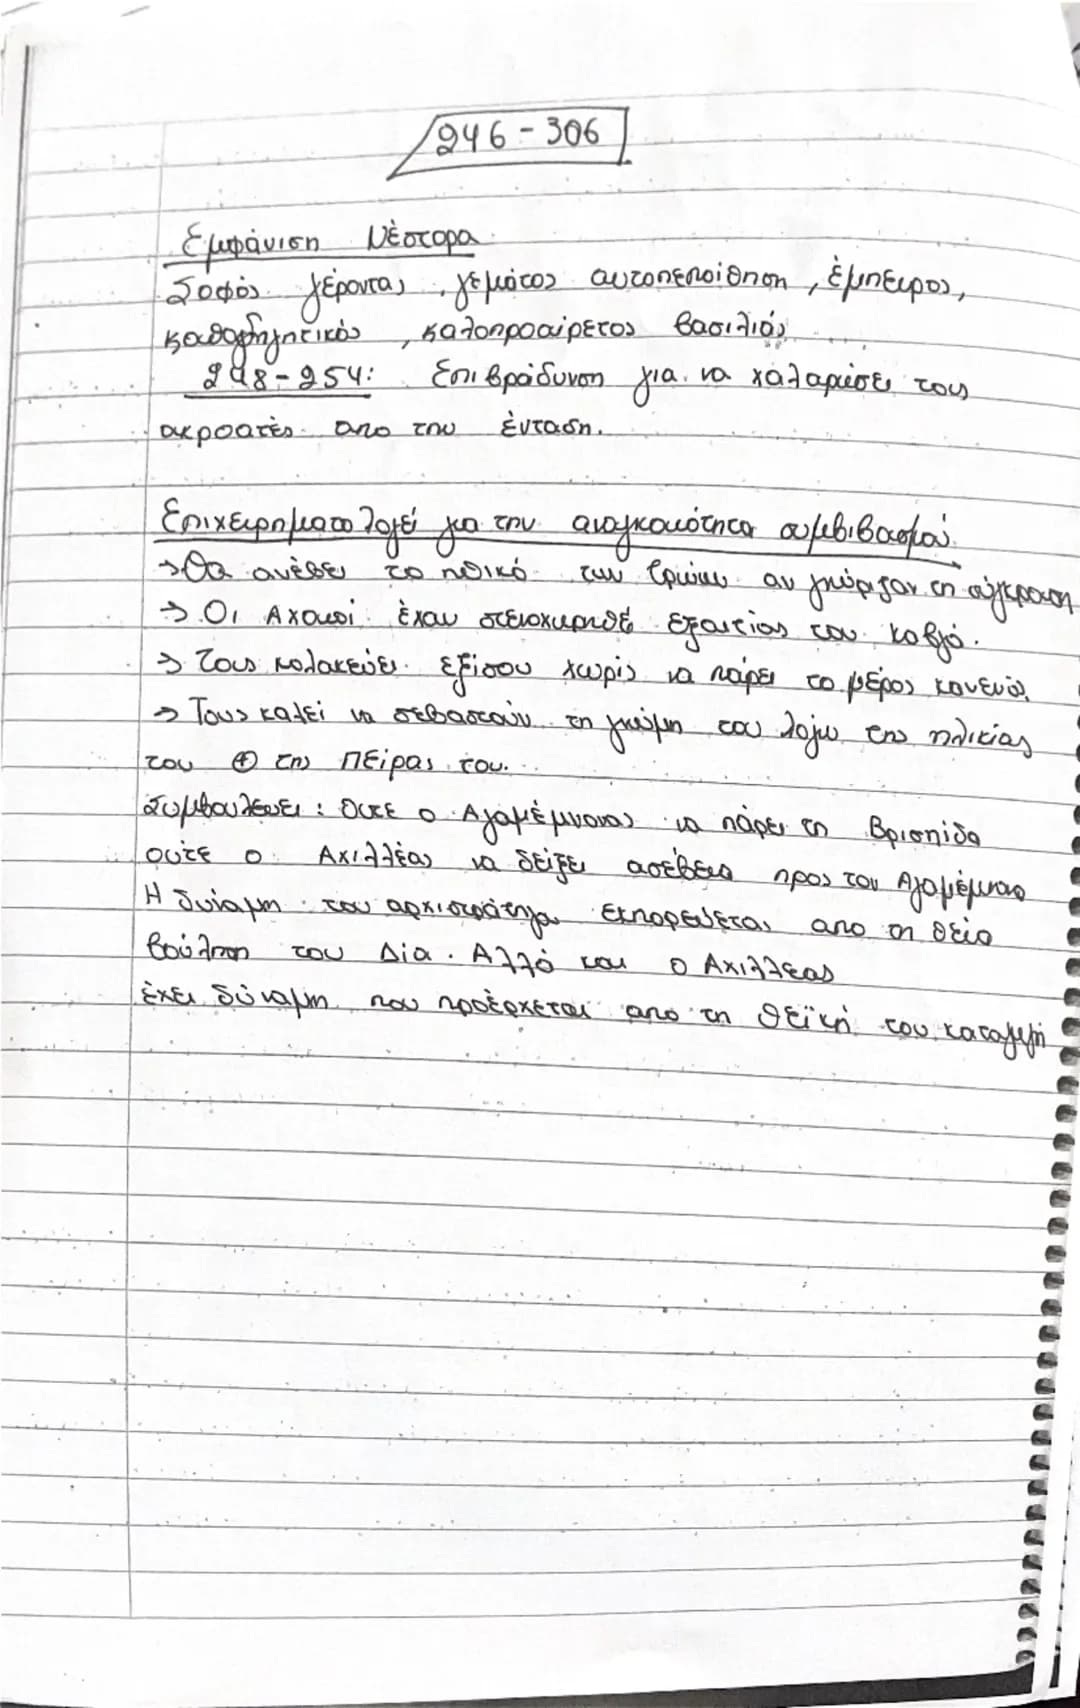 246-306
Εμφάνιση Νέστορα
Σοφός γέροντας, γεμάτος αυτοπεποίθηση, έμπειρος,
καθοδηγητικός, καλοπροαίρετος βασιλιάς
248-254: Επιβράδυνση για να χαλαρώσει τους
ακροατές απο την ένταση.
Επιχειρηματολογεί για την αναγκαιότητα συμβιβασμού
→Θα ανέβει το ηθικό των Τρώων αν γνώριζαν τη σύγκρουση
→ Οι Αχαιοί έχουν στεναχωρηθεί εξαιτίας του καβγά.
→ Τους κολακεύει εξίσου χωρίς να πάρει το μέρος κανενός
→ Τους καλεί να σεβαστούν τη γνώμη του λόγω της ηλικίας
του ⊕ της πείρας του.
Συμβουλεύει: Ούτε ο Αγαμέμνονας να πάρει τη Βρισηίδα
ούτε ο Αχιλλέας να δείξει ασέβεια προς τον Αγαμέμνονα
Η δύναμη του αρχιστράτηγου εκπορεύεται απο τη θεία
βούληση του Δία. Αλλά και ο Αχιλλέας
έχει δύναμη που προέρχεται απο τη θεϊκή του καταγωγή